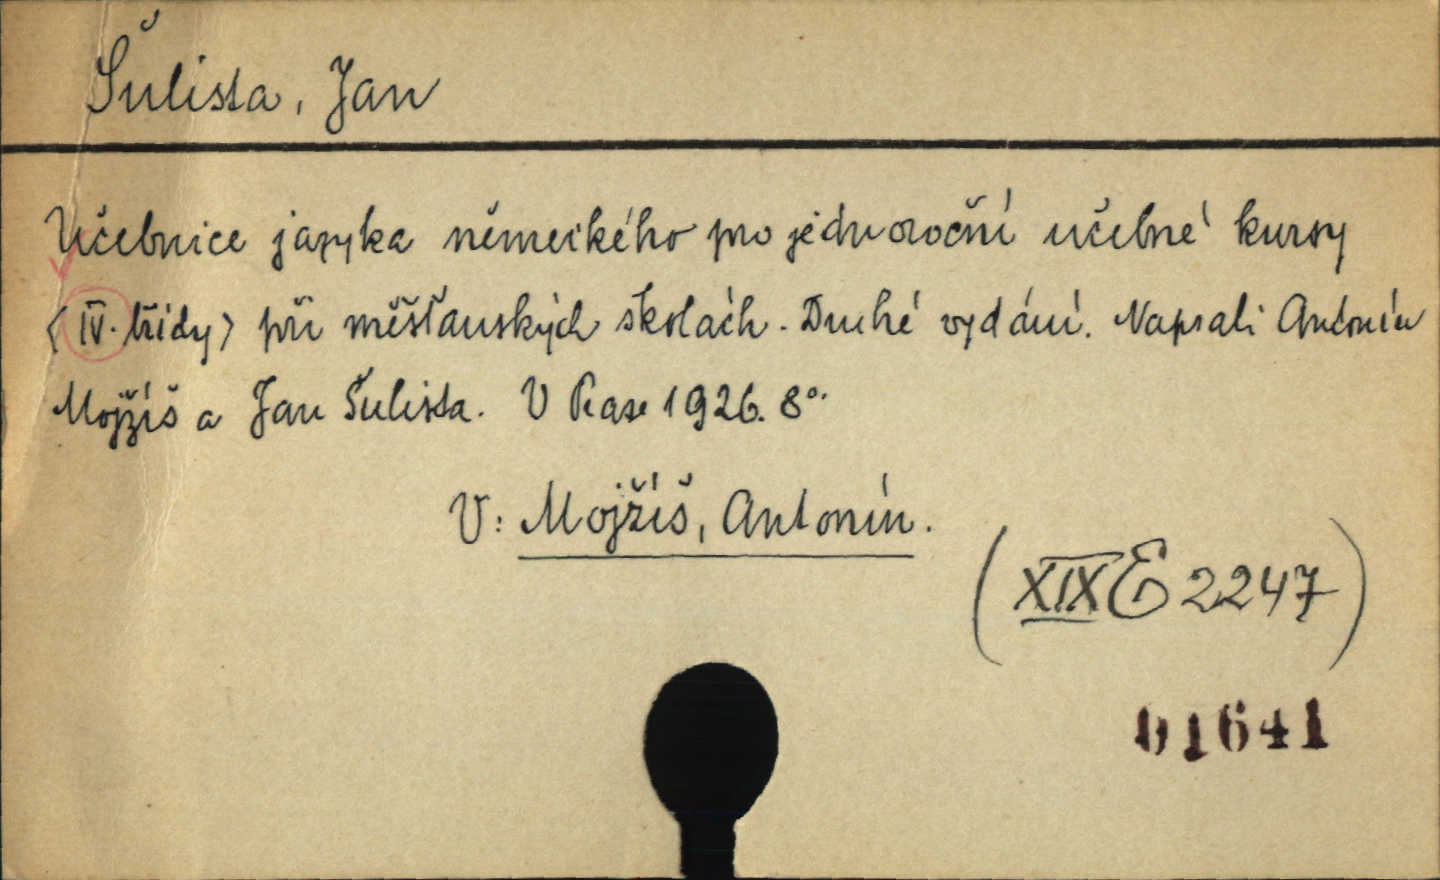 Šulista, Jan
Učebnice jazyka německého pro jednoroční učebné kursy
<IV. třídy> při měšťanských školách. Druhé vydání. Napsali Antonín
Mojžíš a Jan Šulista. V Praze 1926. 8°.
V: Mojžíš, Antonín.
(XIX E 2247)
01641